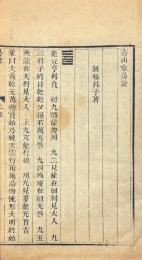 壽山堂易說
無極呂子著
乾元亨利貞 初九潛龍勿用 九二見龍在田利見大人 九
三君子終日乾乾夕惕若厲无咎 九四或躍在淵无咎 九五
飛龍在天利見大人 上九亢龍有悔 用九見羣龍无首吉
彖曰大哉乾元萬物資始乃統天雲行雨施品物流形大明終始